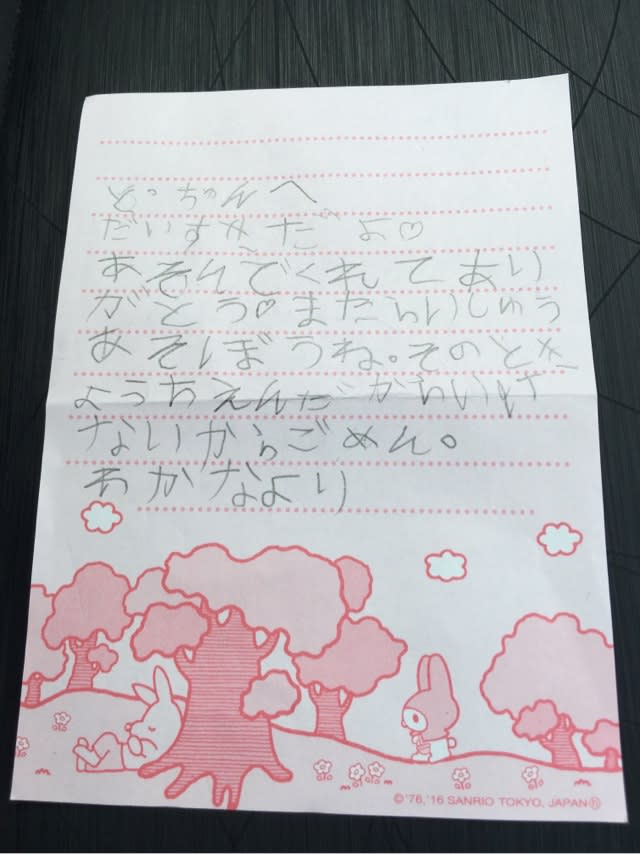 とっちゃんへ
だいすきだよ♡
あそんでくれてあり
がとう♡またらいしゅう
あそぼうね。そのとき
ようちえんだからいけ
ないからごめん。
わかなより
©'76,'16 SANRIO TOKYO, JAPAN Ⓗ